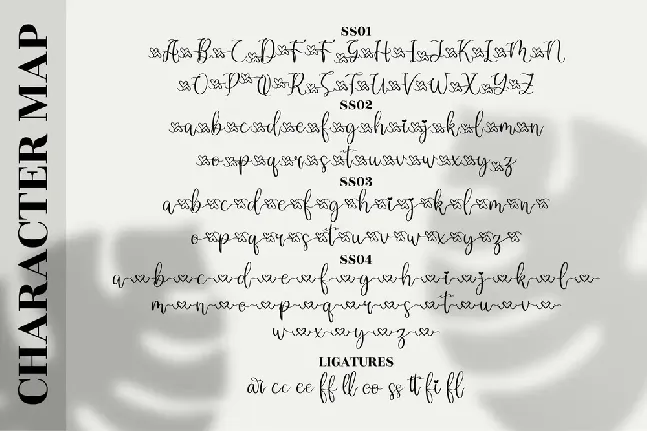 CHARACTER MAP
SS01
A B C D E F G H I J K L M N
O P Q R S T U V W X Y Z
SS02
a b c d e f g h i j k l m n
o p q r s t u v w x y z
SS03
a b c d e f g h i j k l m n
o p q r s t u v w x y z
SS04
a b c d e f g h i j k l
m n o p q r s t u v
w x y z
LIGATURES
ai cc ee ff ll oo ss tt fi fl